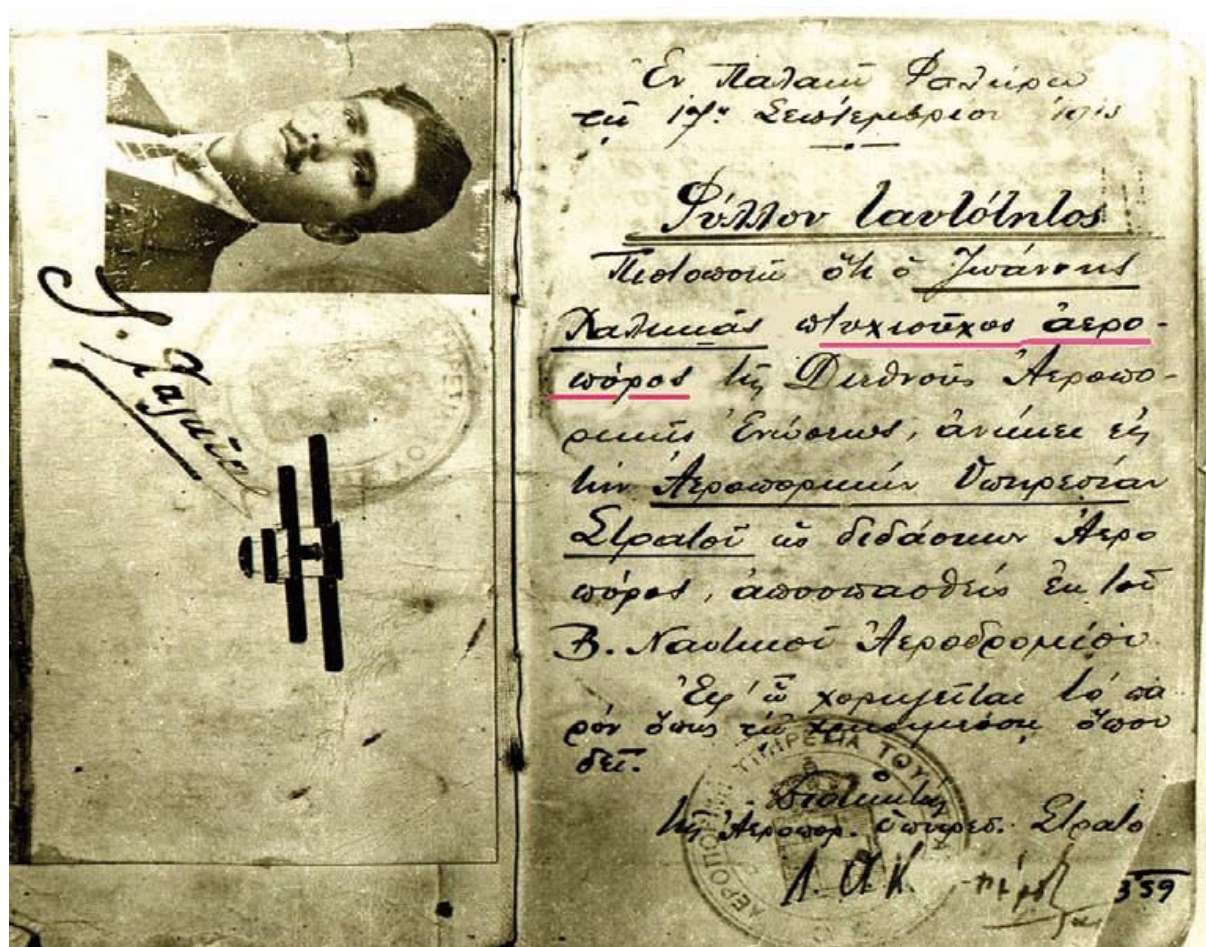 Ι. Χαλκιᾶς
Ἐν Παλαιῷ Φαλήρῳ
τῇ 17ῃ Σεπτεμβρίου
Φύλλον ταυτότητος
Πιστοποιῶ ὅτι ὁ Ἰωάννης
Χαλκιᾶς πτυχιοῦχος ἀερο-
πόρος τῆς Διεθνοῦς Ἀεροπο-
ρικῆς Ἑνώσεως, ἀνήκει εἰς
τὴν Ἀεροπορικὴν Ὑπηρεσίαν
Στρατοῦ ὡς διδάσκων Ἀερο
πόρος, ἀποσπασθεὶς ἐκ τοῦ
Β. Ναυτικοῦ Ἀεροδρομίου
Ἐφ' ᾧ χορηγεῖται τὸ πα
ρόν ὅπως τῷ χρησιμεύσῃ ὅπου
δεῖ.
Ὁ
Διοικητὴς
τῆς Ἀεροπορ. Ὑπηρεσ. Στρατο
359